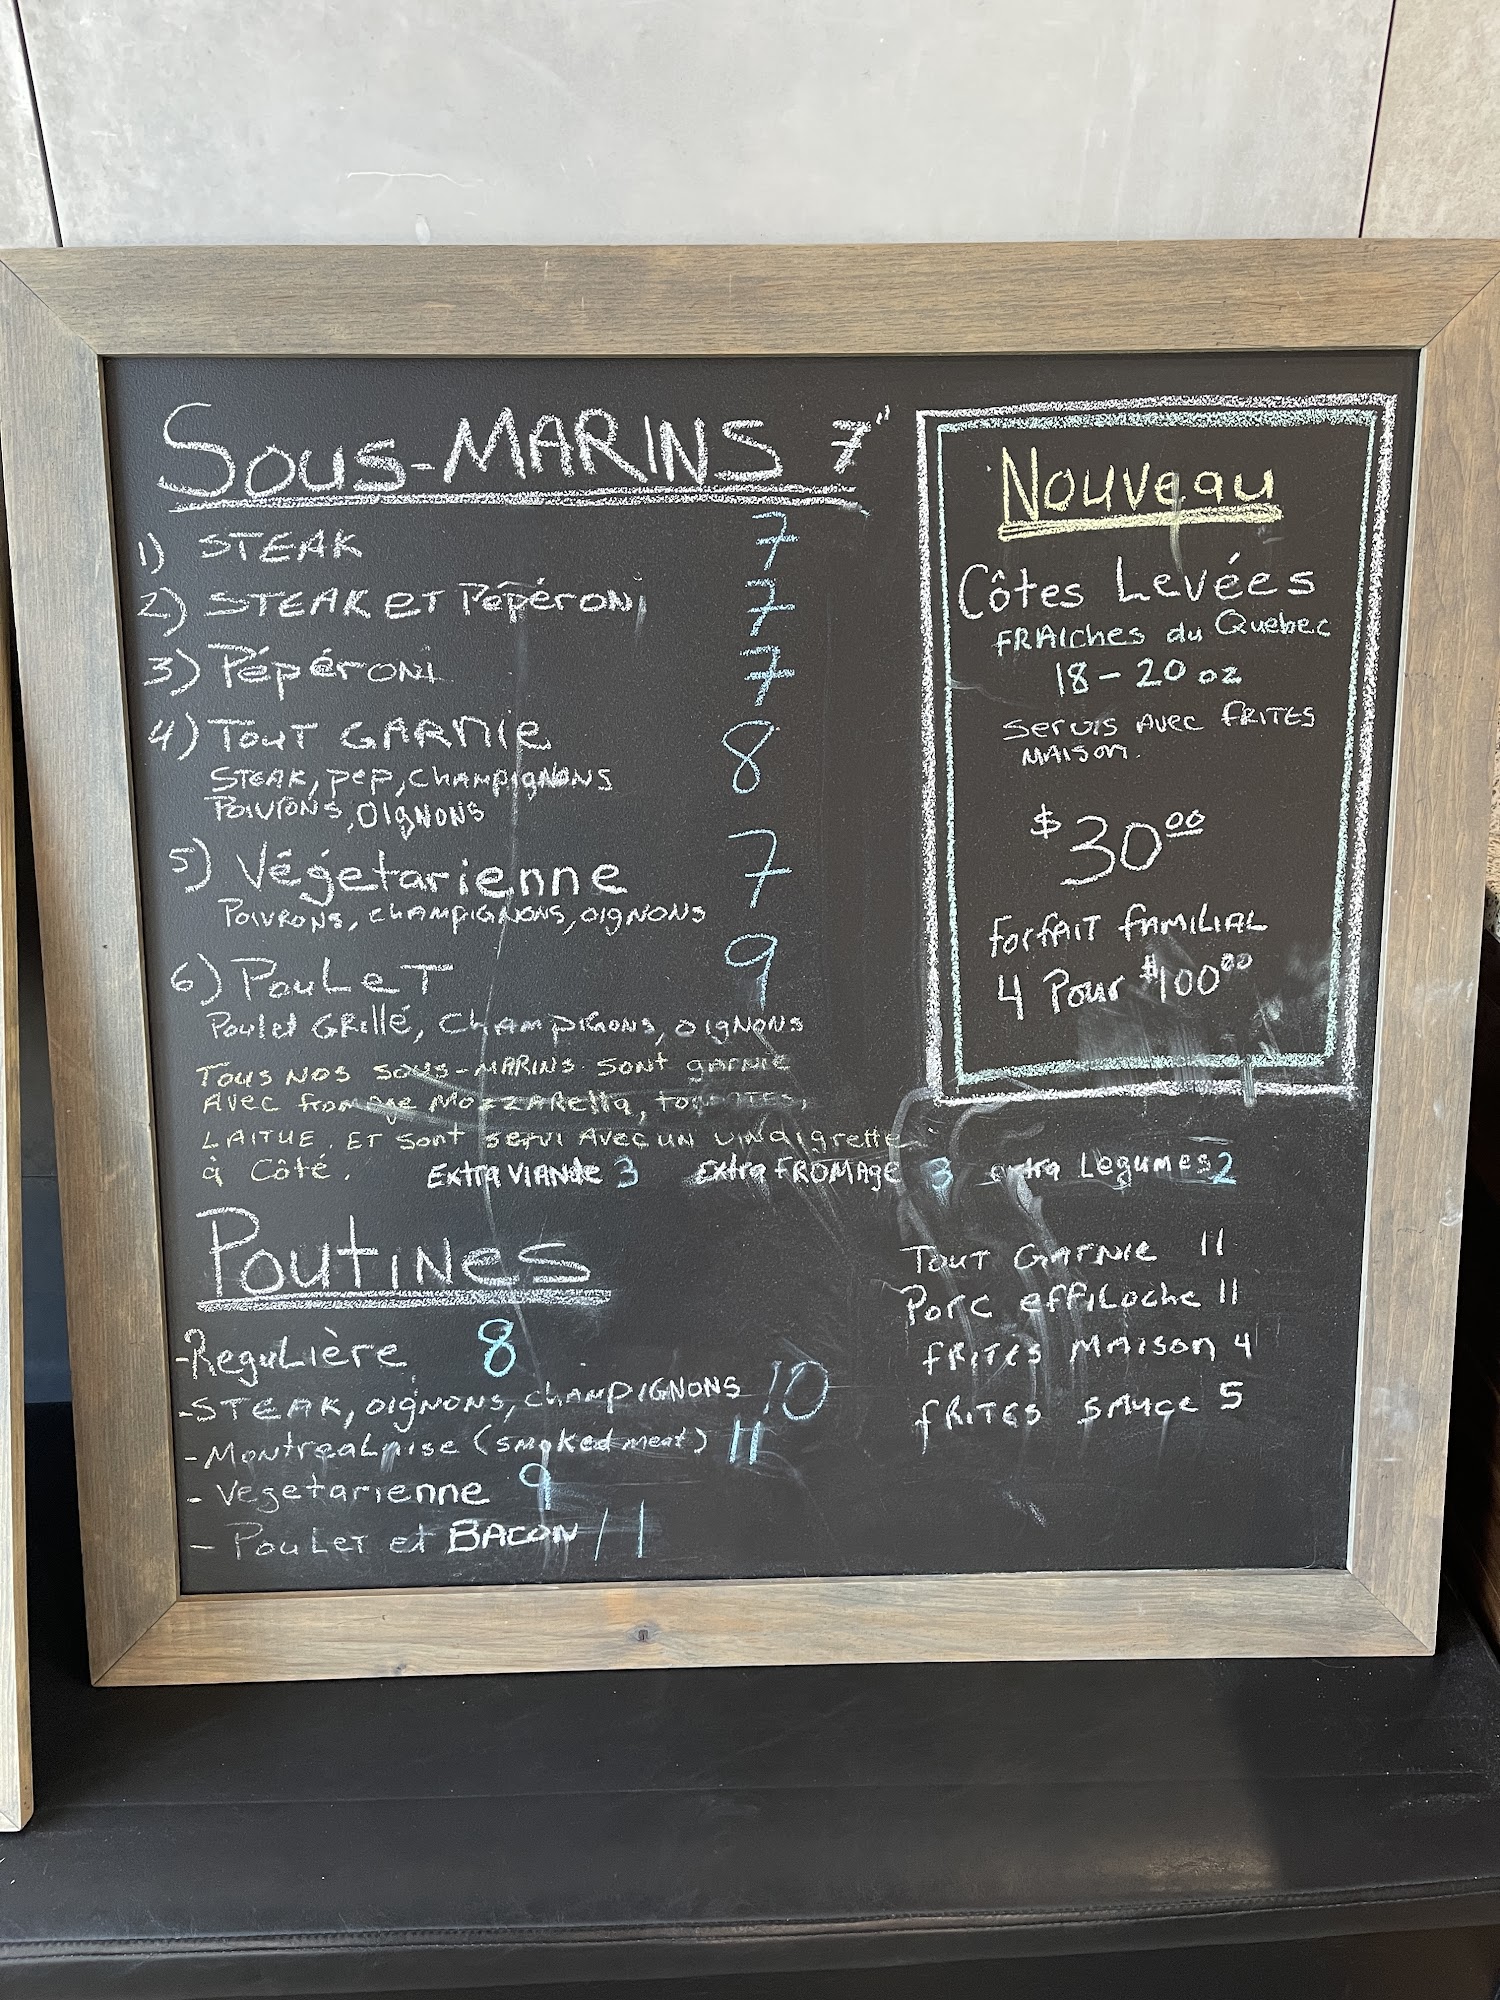 Sous-MARINS 7"
1) STEAK 7
2) STEAK ET Pépéroni 7
3) Pépéroni 7
4) Tout GARNIE 8
STEAK, pep, champignons
Poivrons, oignons
5) Végétarienne 7
Poivrons, champignons, oignons
6) PouLeT 9
Poulet Grillé, champignons, oignons
Tous nos sous-marins sont garnie
Avec fromage Mozzarella, tomates,
LAITUE. ET sont servi Avec un vinaigrette
à Côté.
Extra VIANde 3 Extra FROMAge 3 extra Légumes 2
Nouveau
Côtes Levées
FRAIches du Quebec
18-20 oz
servis Avec fRITES
MAISON.
$30.00
Forfait familial
4 Pour $100.00
Poutines
-Regulière 8
-STEAK, oignons, champignons 10
-Montrealaise (smoked meat) 11
- Vegetarienne 9
- Poulet et BACON 11
Tout Garnie 11
Porc effiloche 11
fRITES MAISON 4
fRITES sauce 5